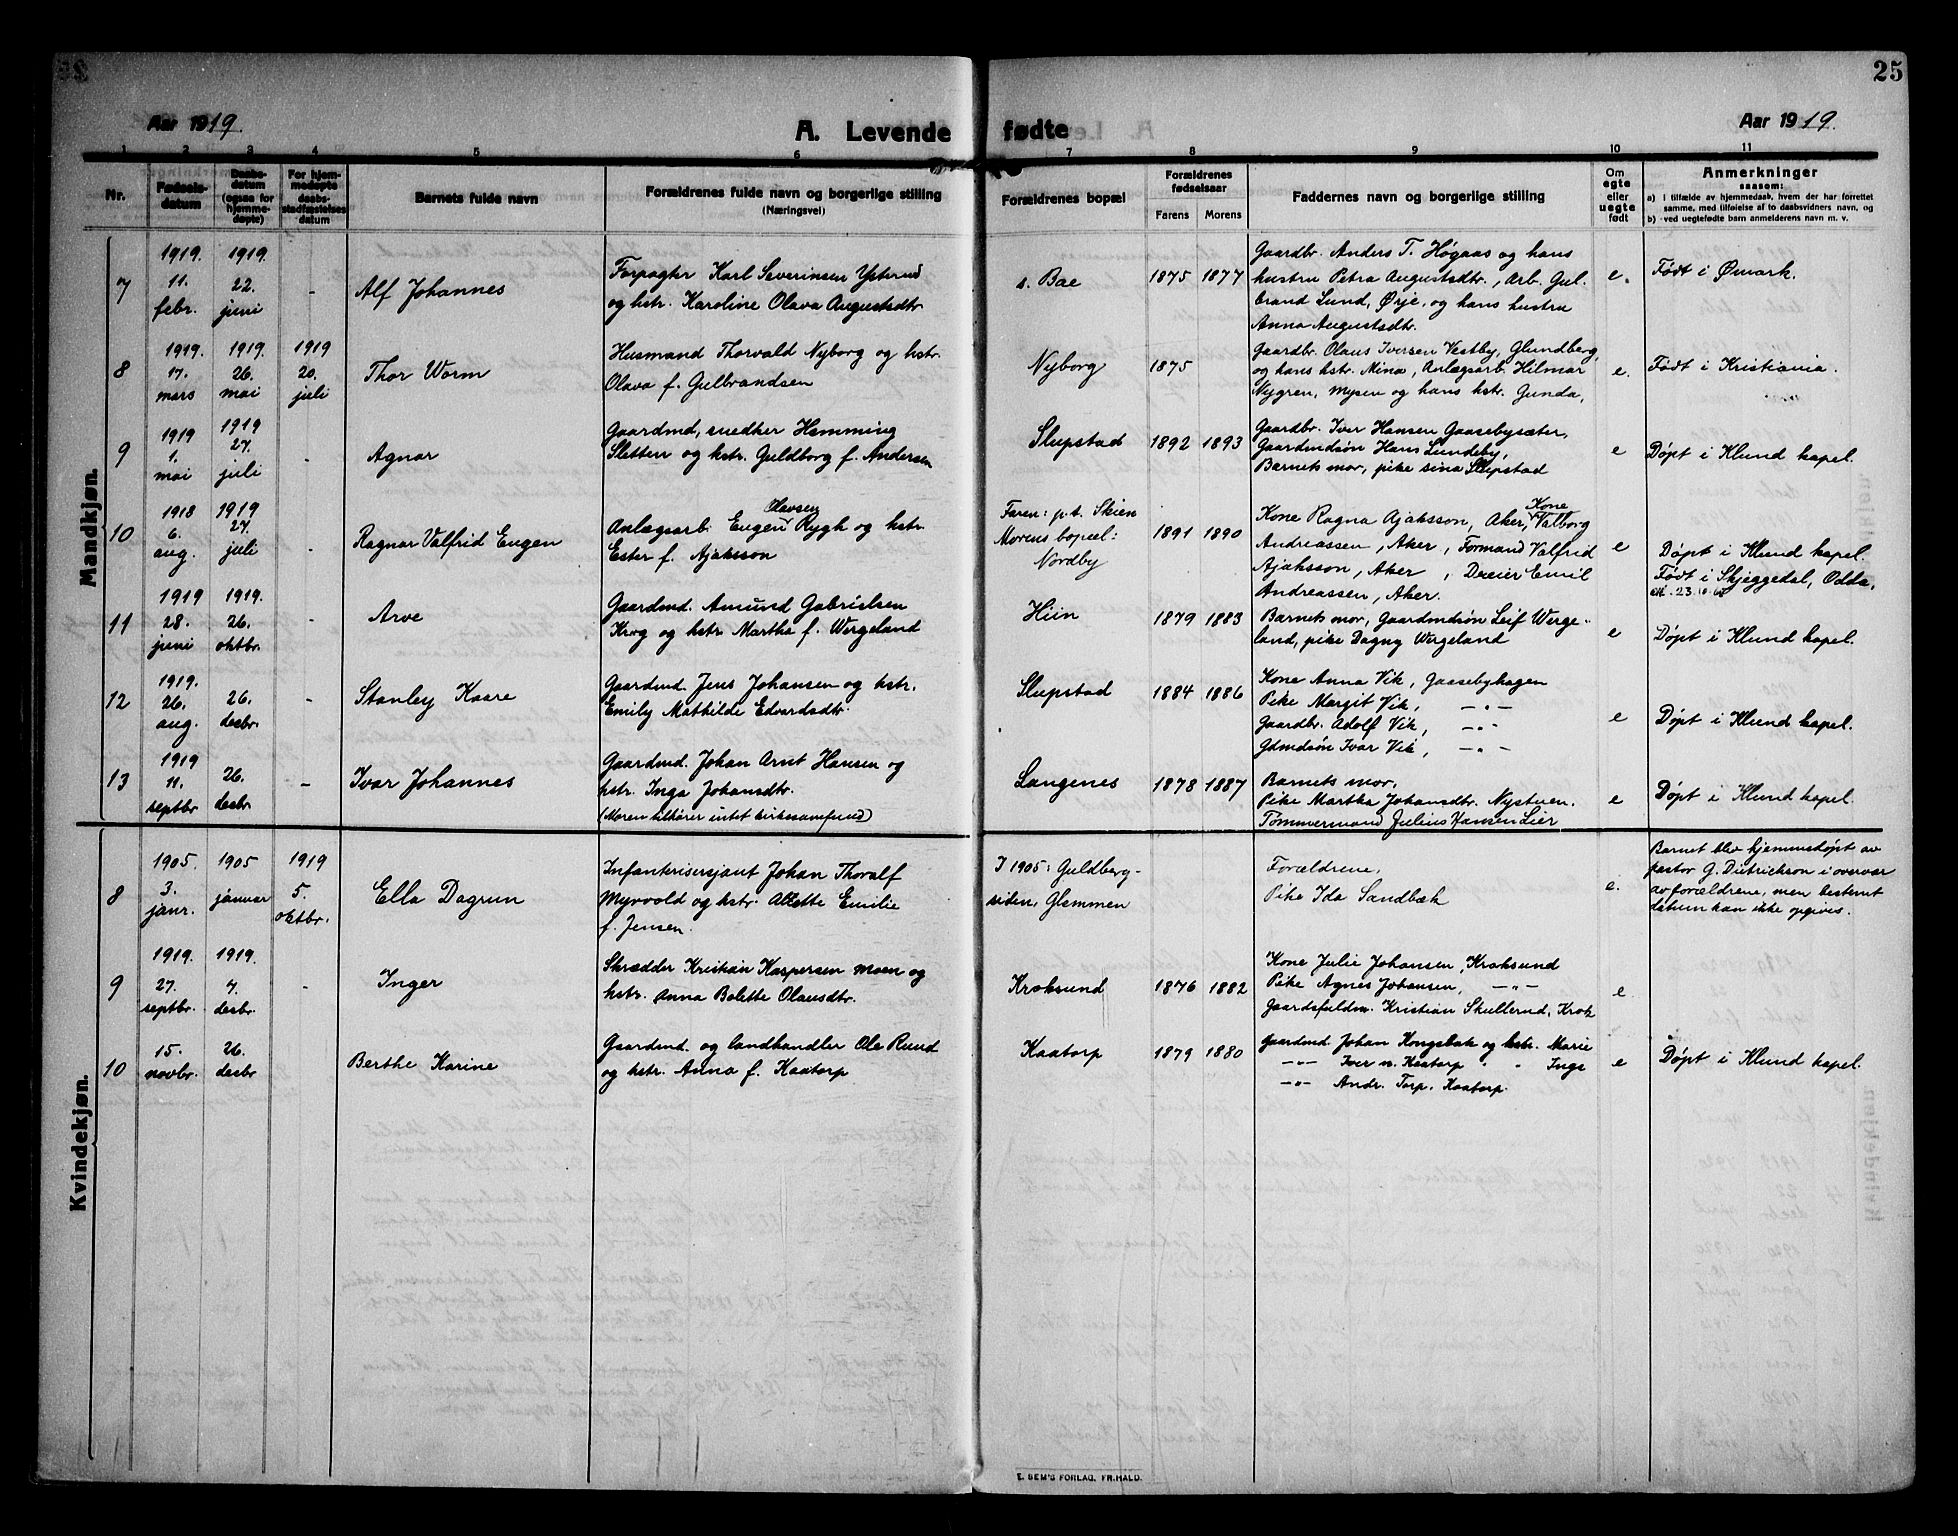 25
Aar 1919.
A. Levende fødte
Aar 1919.
1 2 3 4 5 6 7 8 9 10 11
Nr.
Fødsels-
datum
Daabs-
datum
(ogsaa for
hjemme-
døpte)
For hjem-
medøpte
daabs-
stadfæstelses
datum
Barnets fulde navn
Forældrenes fulde navn og borgerlige stilling
(Næringsvei)
Forældrenes bopæl
Forældrenes
fødselsaar
Farens Morens
Faddernes navn og borgerlige stilling
Om
egte
eller
uegte
født
Anmerkninger
saasom:
a) i tilfælde av hjemmedaab, hvem der har forrettet
samme, med tilføielse af to daabsvidners navn, og
b) ved uegtefødte barn anmelderens navn m. v.
Mandkjøn.
7
1919.
11.
febr.
1919.
22.
juni
-
Alf Johannes
Forpagter Karl Severinsen Ysterud
og hstr. Karoline Olava Augustsdtr.
s. Bae
1875 1877
Gaardbr. Anders T. Høgaas og hans
hustru Petra Augustsdtr., Arb. Gul-
brand Lund, Ørje, og hans hustru
Anna Augustsdtr.
e.
Født i Ømark.
8
1919.
17.
mars
1919.
26.
mai
1919
20.
juli
Thor Worm
Husmand Thorvald Nyborg og hstr.
Olava f. Gulbrandsen
Nyborg
1875
Gaardbr. Olaus Iversen Vestby, Glundberg,
og hans hstr. Mina, Anlægsarb. Hilmar
Nygren, Mysen og hans hstr. Gunda,
e.
Født i Kristiania.
9
1919
1.
mai
1919
27.
juli
-
Agnar
Gaardmd, snedker Hemming
Sletten og hstr. Guldborg f. Andersen
Slupstad
1892 1893
Gaardbr. Iver Hansen Gaasebysæter,
Gaardmdsøn Hans Lundeby,
Barnets mor, pike Sina Slupstad
e
Døpt i Klund kapel.
10
1918
6.
aug.
1919
27.
juli
-
Ragnar Valfrid Eugen
Olavsen
Anlægsarb. Eugen Rygh og hstr.
Ester f. Ajaksson
Faren: p.t. Skien
Morens bopæl:
Nordby
1891 1890
Kone
Kone Ragna Ajaksson, Aker, Valborg
Andreassen, Aker, Formand Valfrid
Ajaksson, Aker, Dreier Emil
Andreassen, Aker.
e
Døpt i Klund kapel.
Født i Skjeggedal, Odda,
11
1919
28.
juni
1919.
26.
oktbr.
-
Arve
Gaardmd. Amund Gabrielsen
Krog og hstr. Martha f. Wergeland
Hiin
1879 1883
Barnets mor, Gaardmdsøn Leif Werge-
land, pike Dagny Wergeland
e
Døpt i Klund kapel.
12
1919.
26.
aug.
26.
desbr.
-
Stanley Kaare
Gaardmd. Jens Johansen og hstr.
Emily Mathilde Edvardsdtr.
Slupstad
1884 1886
Kone Anna Vik, Gaasebyhagen
Pike Margit Vik, -"-
Gaardbr. Adolf Vik, -"-
Gdmdsøn Ivar Vik, -"-
e
Døpt i Klund kapel.
13
1919
11.
septbr.
26.
desbr.
-
Ivar Johannes
Gaardmd. Johan Arnt Hansen og
hstr. Inga Johansdtr.
(Moren tilhører intet kirkesamfund)
Langenes
1878 1887
Barnets mor,
Pike Martha Johansdtr. Nystuen.
Tømmermand Julius Hansen Lier
e
Døpt i Klund kapel.
Kvindekjøn.
8
1905
3.
janr.
1905
januar
1919
5.
oktbr.
Ella Dagrun
Infanterisersjant Johan Thoralf
Myrvold og hstr. Alette Emilie
f. Jensen.
I 1905: Guldberg-
siden, Glemmen
Forældrene,
Pike Ida Sandbæk
e.
Barnet blev hjemmedøpt av
pastor G. Dietrichson i overvær
av forældrene, men bestemt
datum kan ikke opgives.
9
1919.
27.
septbr.
1919.
7.
desbr.
-
Inger
Skrædder Kristian Kaspersen Moen og
hstr. Anna Bolette Olausdtr.
Kroksund
1876 1882
Kone Julie Johansen, Kroksund
Pike Agnes Johansen, -"-
Gaardsfuldm. Kristian Skullerud, Krok
e
10
15.
novbr.
26.
desbr.
Berthe Karine
Gaardmd. og landhandler Ole Rund
og hstr. Anna f. Kaatorp
Kaatorp
1879 1880
Gaardmd Johan Kongsbak og hstr. Marie
-"- Iver n. Kaatorp " " Inga
-"- Andr. Torp, Kaatorp.
e
Døpt i Klund kapel.
E. SEM'S FORLAG, FR.HALD.